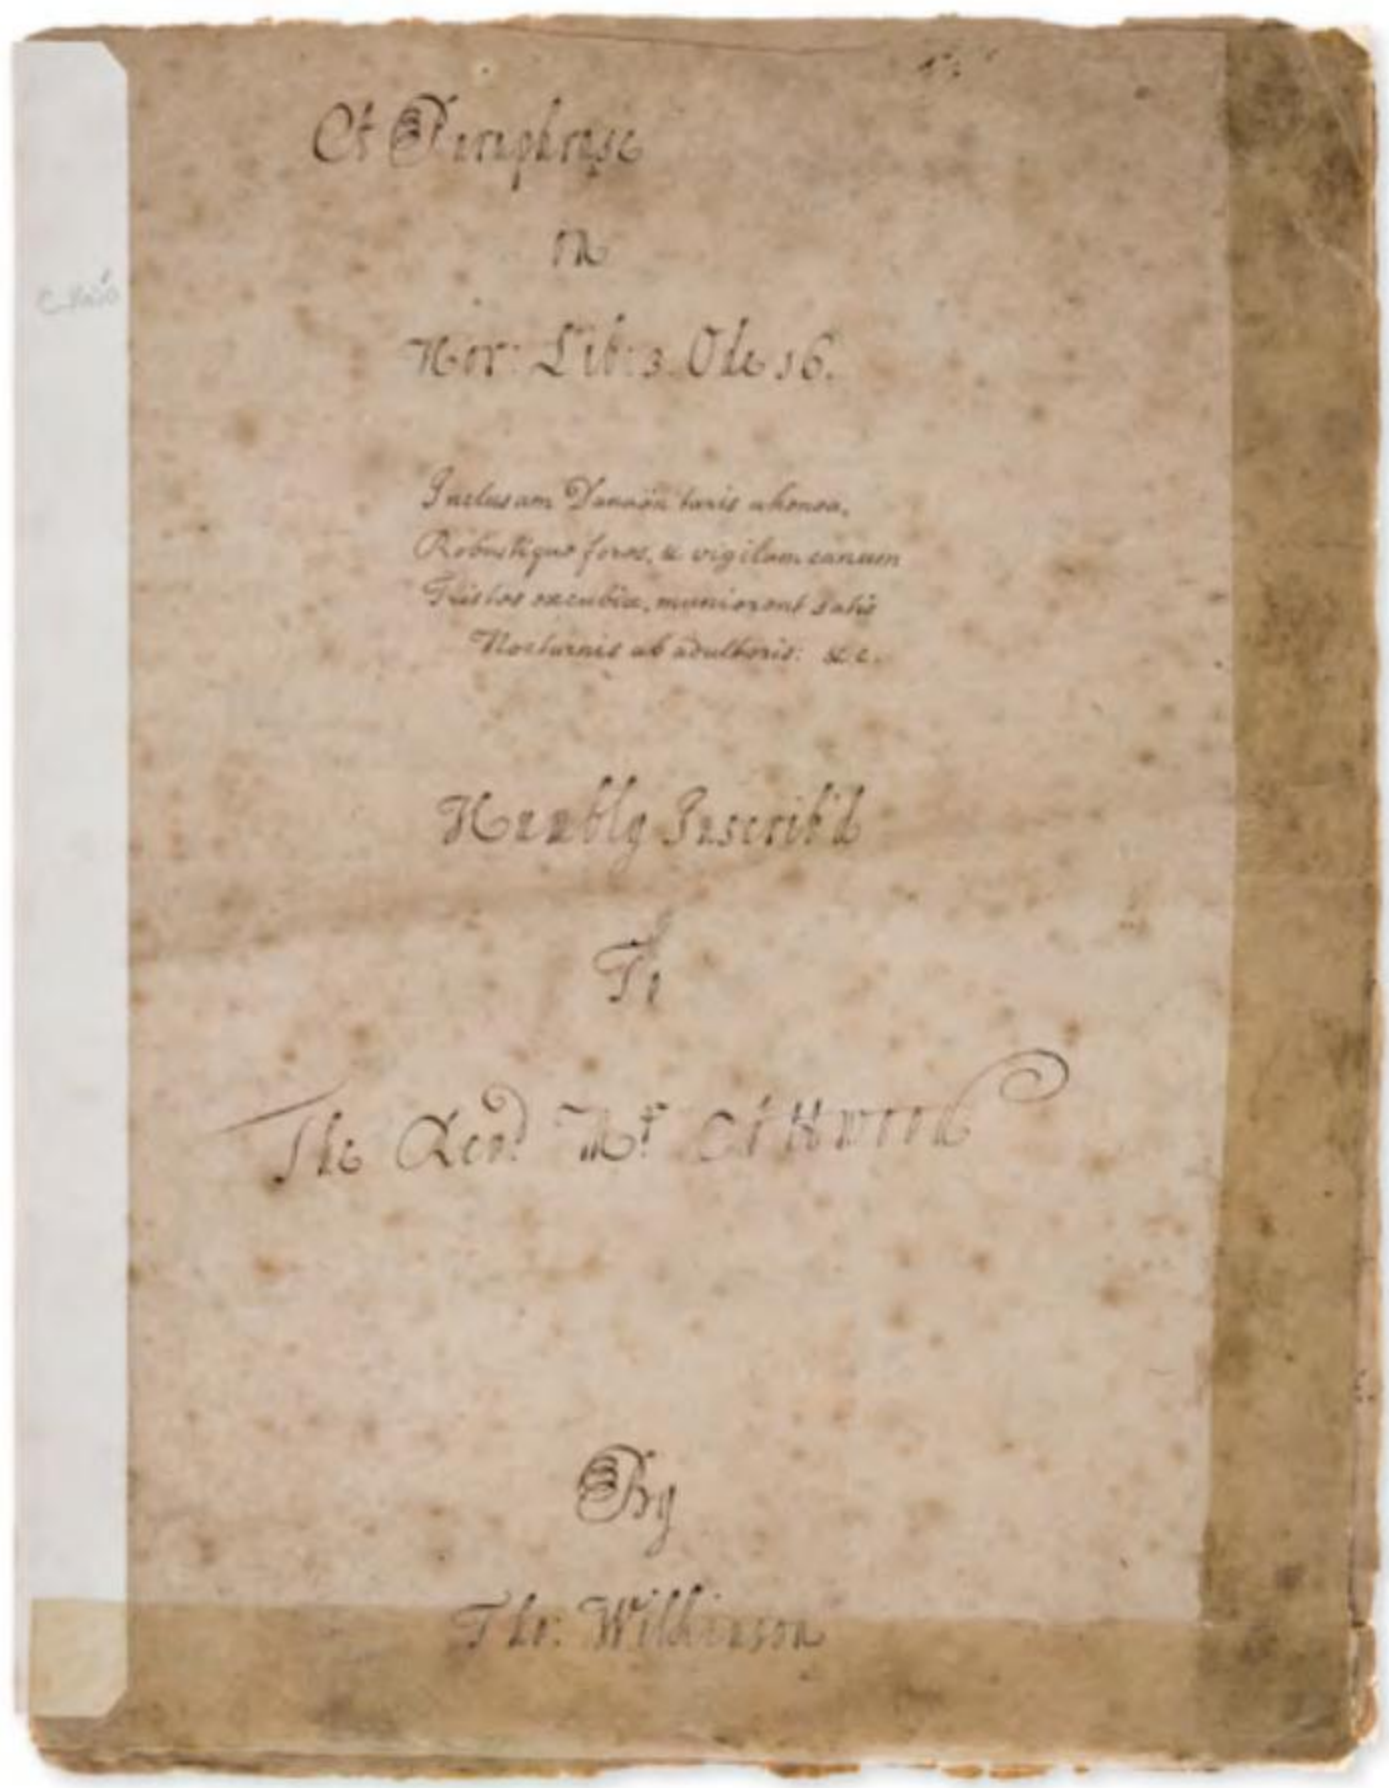 A Paraphrase
on
Hor: Lib: 3. Ode 16.
Inclusam Danaën turris ahenea,
Robustique fores, & vigilum canum
Tristes excubiæ, munierant satis
Nocturnis ab adulteris: &c.
Humbly Inscrib'd
To
The Revd. Mr. Attwood
By
Tho: Wilkinson